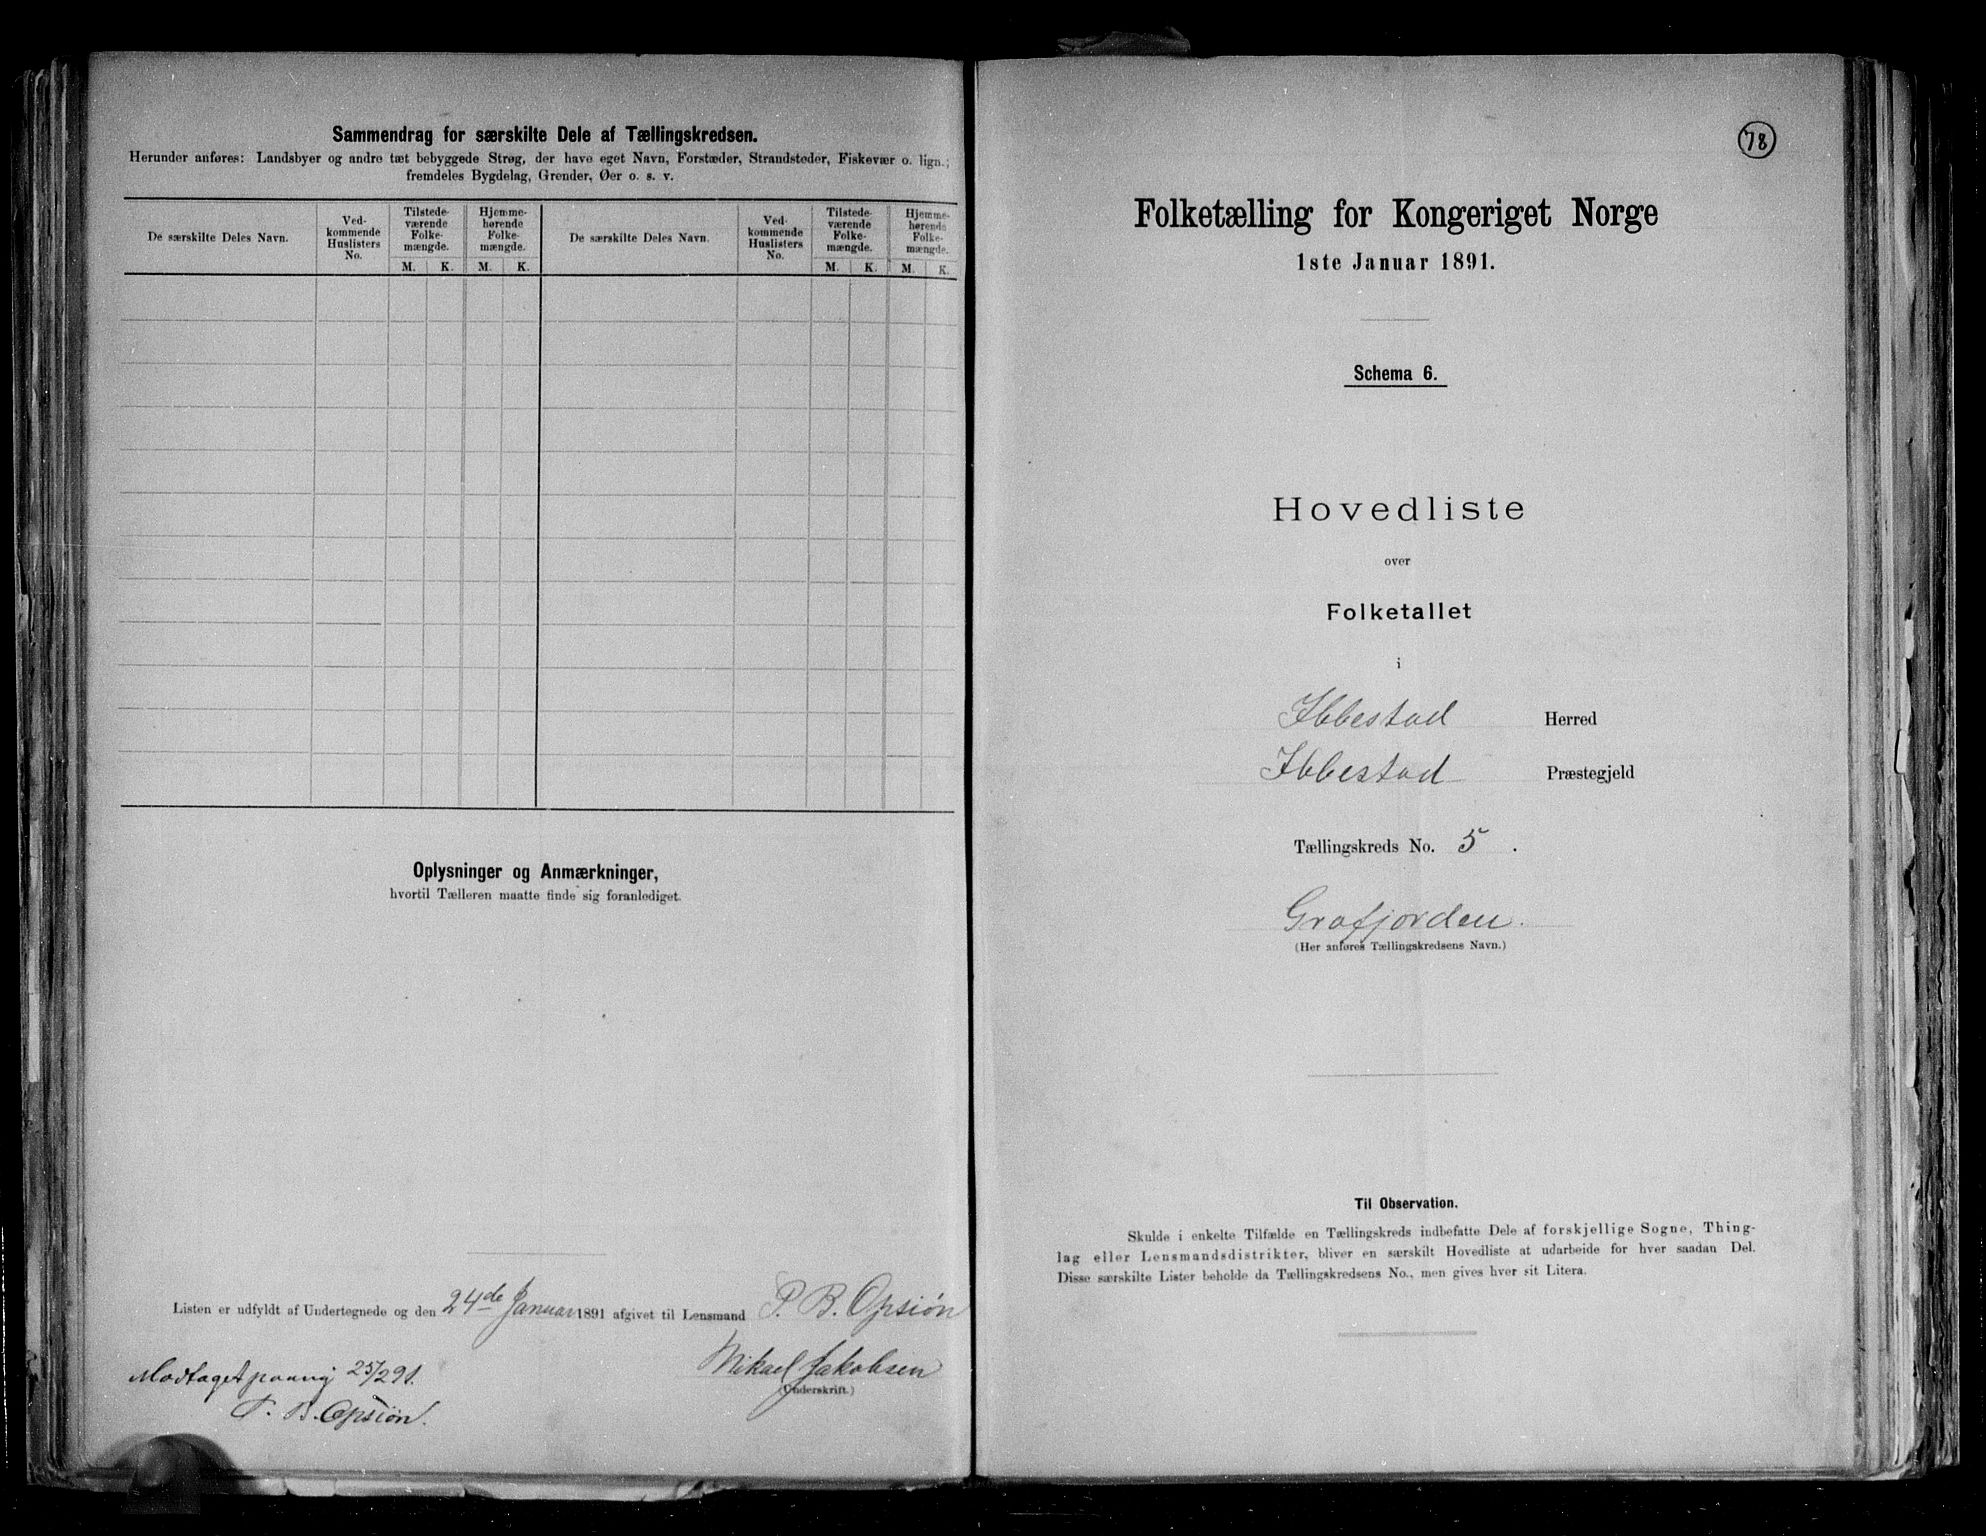 Sammendrag for særskilte Dele af Tællingskredsen.
Herunder anføres: Landsbyer og andre tæt bebyggede Strøg, der have eget Navn, Forstæder, Strandsteder, Fiskevær o. lign.;
fremdeles Bygdelag, Grender, Øer o. s. v.
De særskilte Deles Navn.
Ved-
kommende
Huslisters
No.
Tilstede-
værende
Folke-
mængde.
Hjemme-
hørende
Folke-
mængde.
M. K. M. K.
De særskilte Deles Navn.
Ved-
kommende
Huslisters
No.
Tilstede-
værende
Folke-
mængde.
Hjemme-
hørende
Folke-
mængde.
M. K. M. K.
Oplysninger og Anmærkninger,
hvortil Tælleren maatte finde sig foranlediget.
Listen er udfyldt af Undertegnede og den 24de Januar 1891 afgivet til Lensmand P. B. Opsiøn
Mikael Jakobsen
(Underskrift.)
25/2 91.
P. B. Opsiøn.
78
Folketælling for Kongeriget Norge
1ste Januar 1891.
Schema 6.
Hovedliste
over
Folketallet
i
Ibbestad Herred
Ibbestad Præstegjeld
Tællingskreds No. 5 .
Grafjorden.
(Her anføres Tællingskredsens Navn.)
Til Observation.
Skulde i enkelte Tilfælde en Tællingskreds indbefatte Dele af forskjellige Sogne, Thing-
lag eller Lensmandsdistrikter, bliver en særskilt Hovedliste at udarbeide for hver saadan Del.
Disse særskilte Lister beholde da Tællingskredsens No., men gives hver sit Litera.